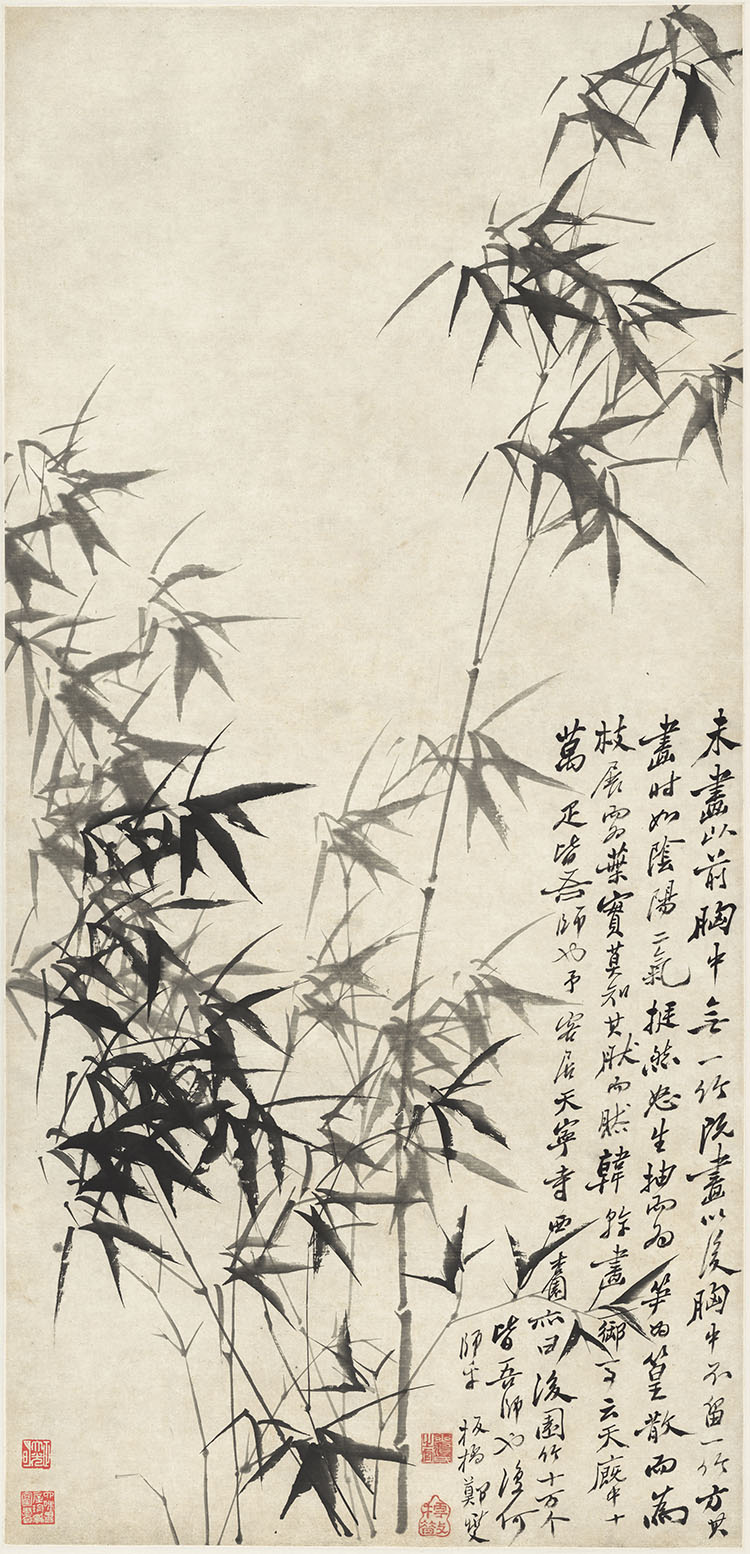 未畫以前胸中无一竹既畫以後胸中不留一竹方其
畫时如陰陽二氣挺然怒生抽而為笋為篁散而為
枝展而為葉實莫知其然而然韓幹畫御馬云天廄中十
萬疋皆吾師也予客居天寧寺西杏園亦曰後園竹十万个
皆吾師也復何
師乎 板橋鄭燮